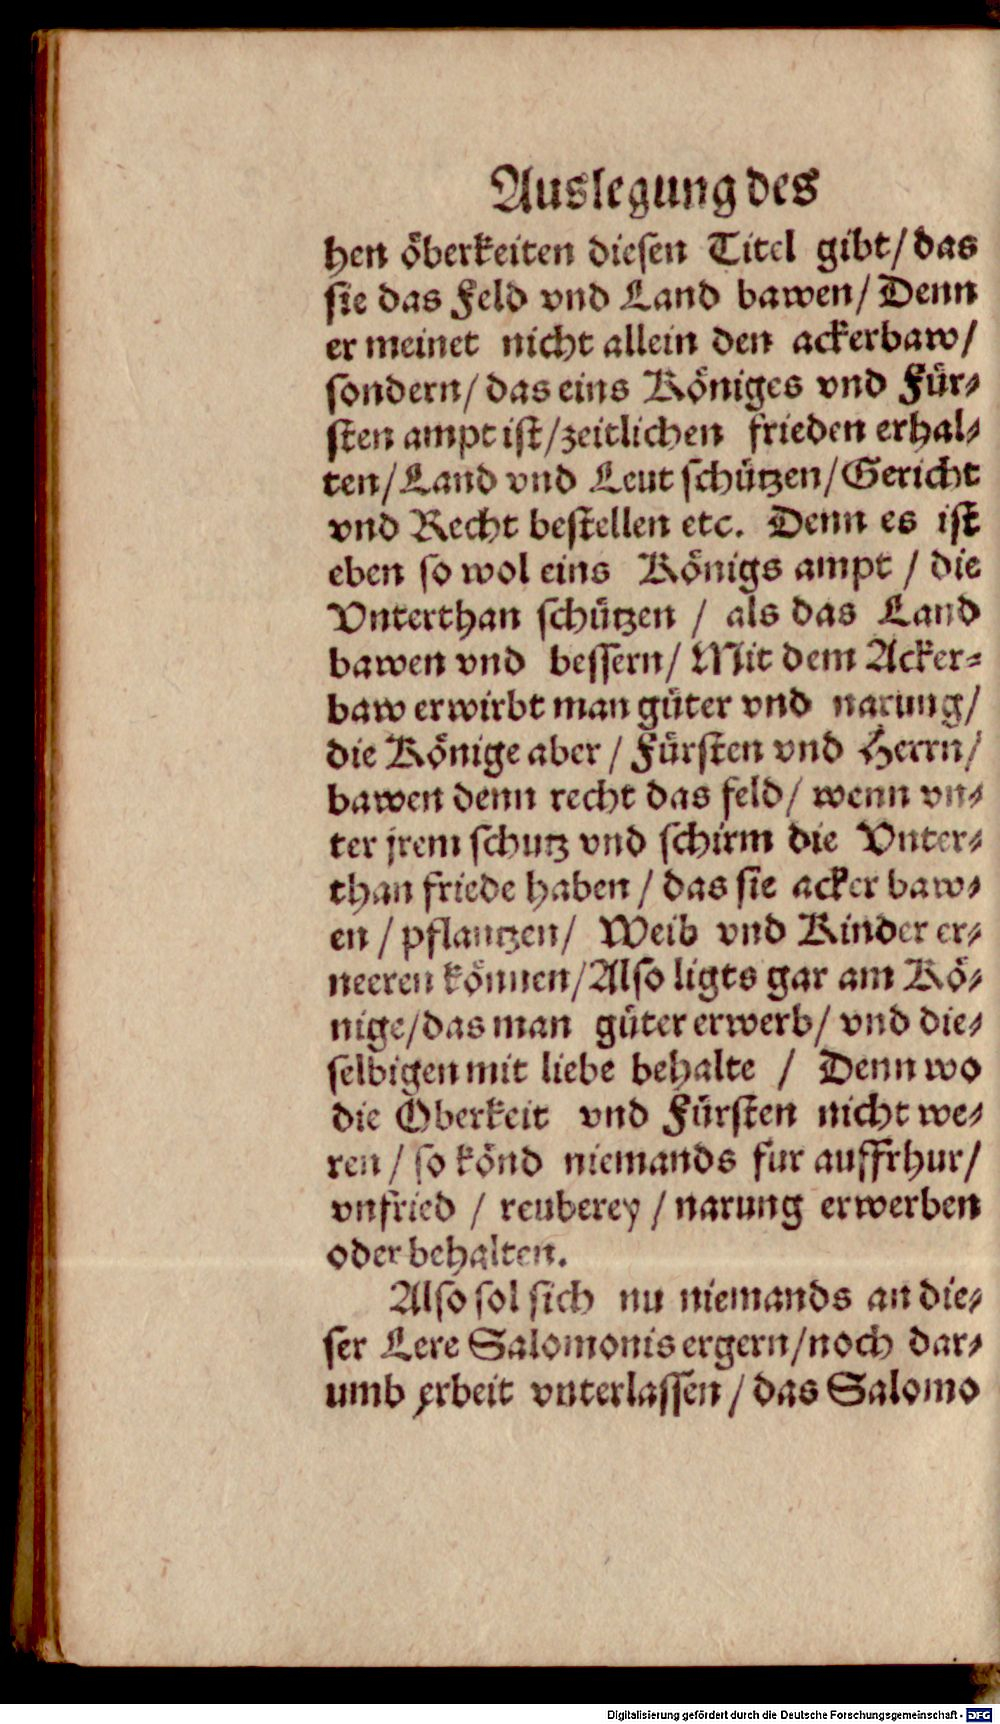 Auslegung des
hen öberkeiten diesen Titel gibt/ das
sie das Feld vnd Land bawen/ Denn
er meinet nicht allein den ackerbaw/
sondern/ das eins Königes vnd Für⸗
sten ampt ist/ zeitlichen frieden erhal⸗
ten/ Land vnd Leut schützen/ Gericht
vnd Recht bestellen etc. Denn es ist
eben so wol eins Königs ampt / die
Vnterthan schützen / als das Land
bawen vnd bessern/ Mit dem Acker⸗
baw erwirbt man güter vnd narung/
die Könige aber / Fürsten vnd Herrn/
bawen denn recht das feld/ wenn vn⸗
ter jrem schutz vnd schirm die Vnter⸗
than friede haben / das sie acker baw⸗
en / pflantzen/ Weib vnd Kinder er⸗
neeren können/ Also ligts gar am Kö⸗
nige/ das man güter erwerb/ vnd die⸗
selbigen mit liebe behalte / Denn wo
die Oberkeit vnd Fürsten nicht we⸗
ren / so könd niemands fur auffrhur/
vnfried / reuberey / narung erwerben
oder behalten.
Also sol sich nu niemands an die⸗
ser Lere Salomonis ergern/ noch dar⸗
umb erbeit vnterlassen / das Salomo
Digitalisierung gefördert durch die Deutsche Forschungsgemeinschaft - DFG